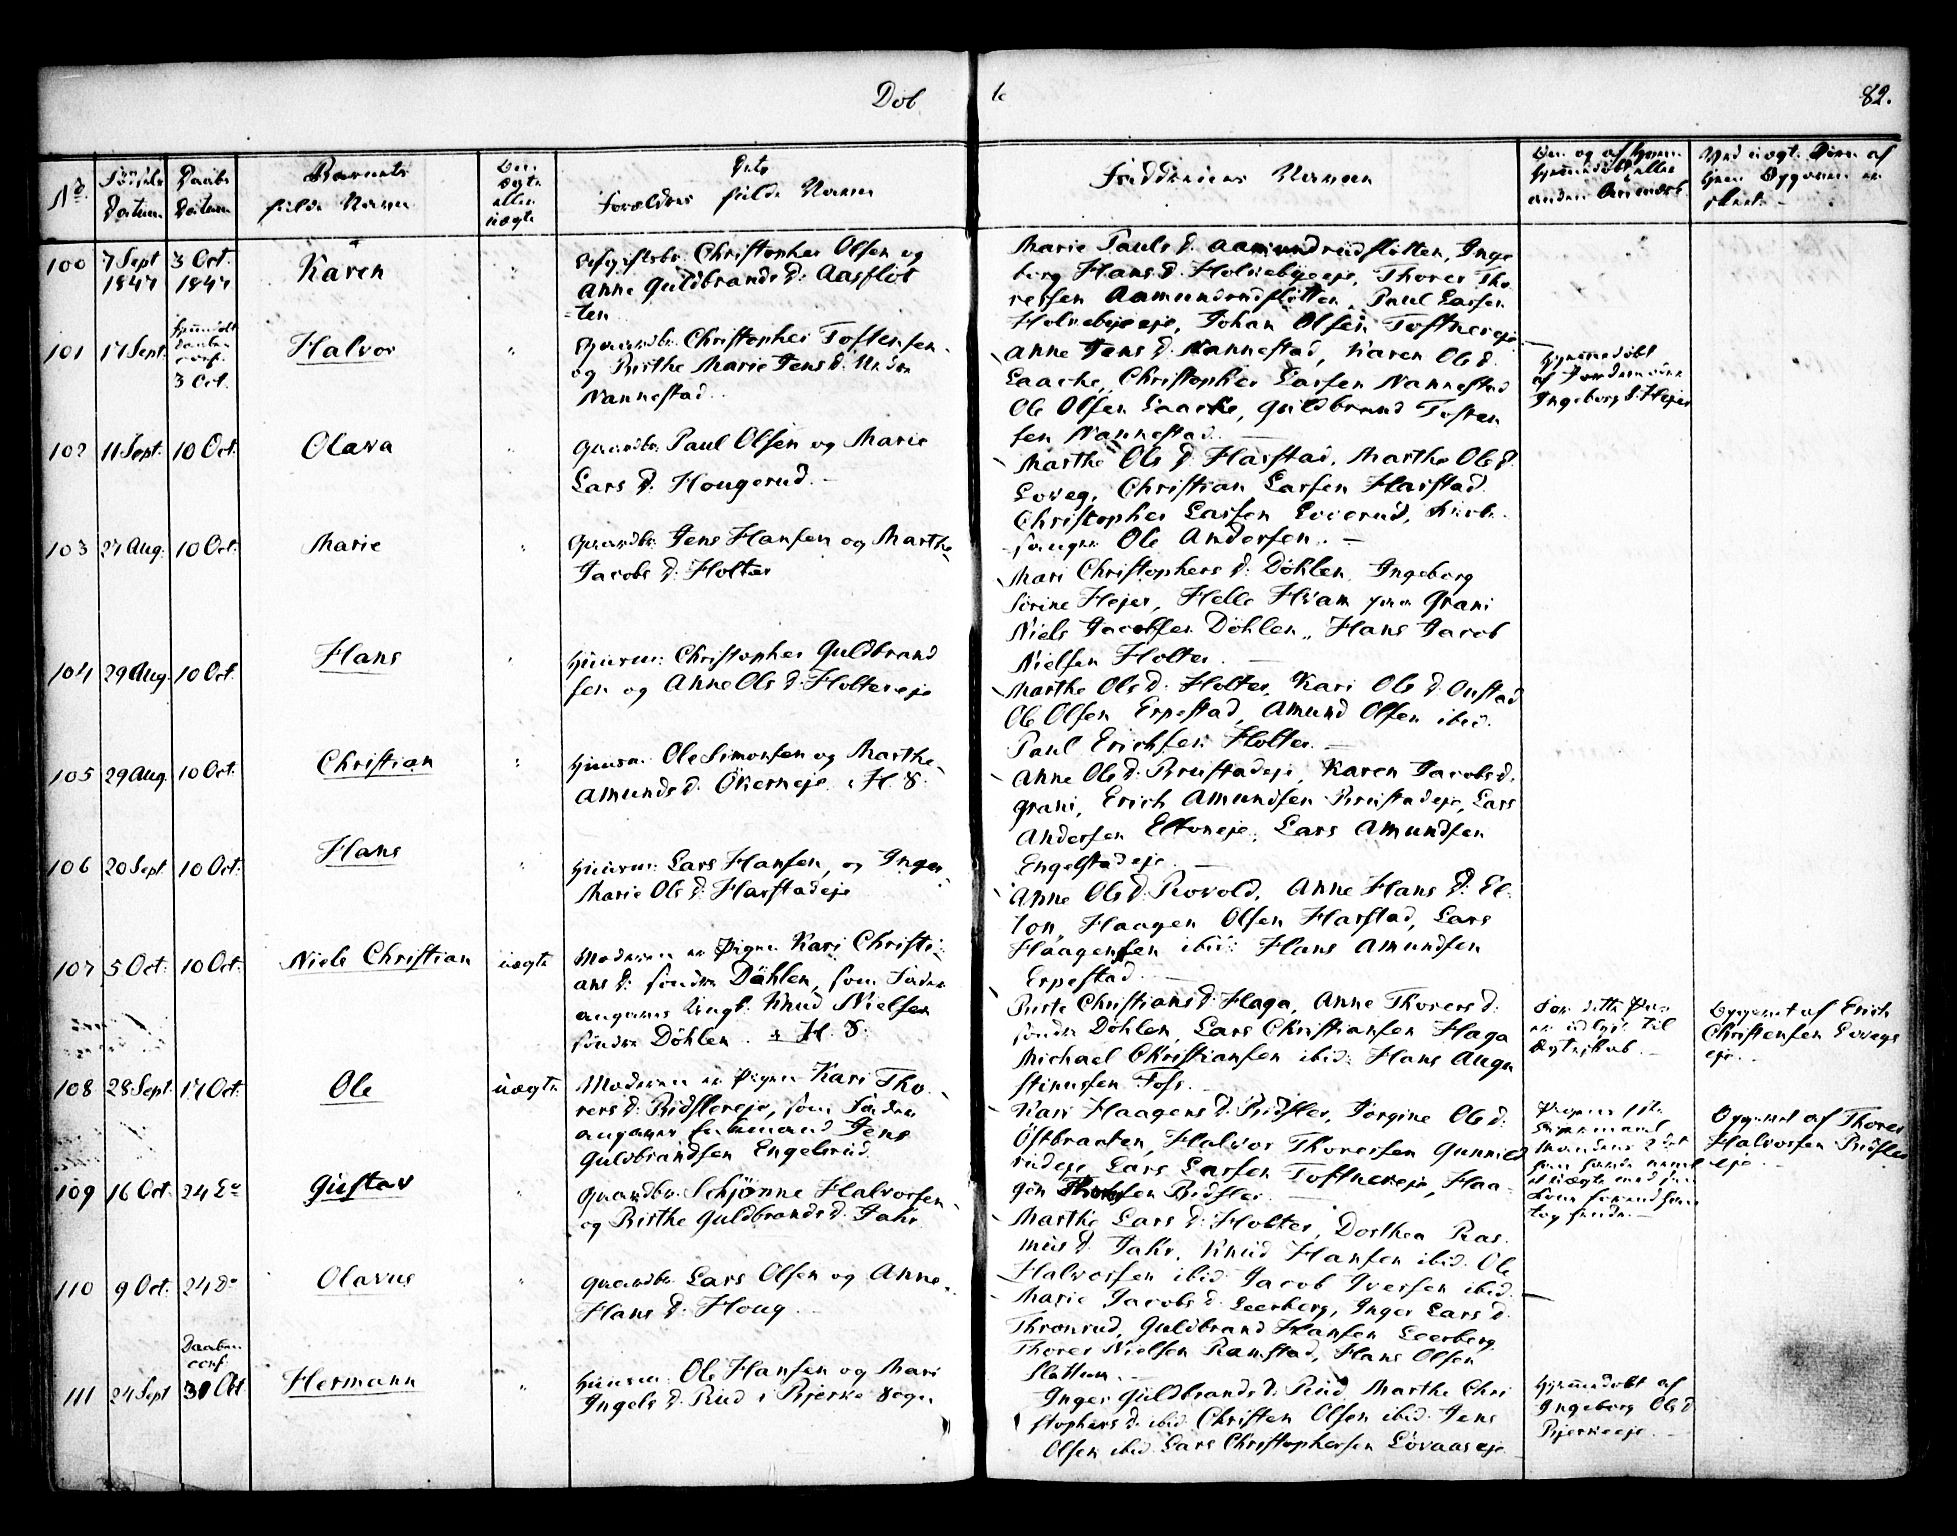 Døb
te
82.
No.
Fødsels Datum
Daabs Datum
Barnets fulde Navn
Om ægte eller uægte
Dets Forældres fulde Navne
Fadderenes Navne
100
7 Sept 1847
3 Oct. 1847
Karen
Christopher Olsen og
Anne Guldbrands D: Aasfløt
-ten
Marie Pauls D: Aamundrudfløtten, Inge
borg Hans D: Holnebyeeje, Thorer Tho
rersen Aamundrudfløtten, Paul Larsen
Holnebyeeje, Johan Olsen Toftnereje
101
17 Sept.
3 Oct.
Halvor
Gaardbr. Christopher Tostensen
og Birthe Marie Jens D: Nedre
Nannestad.
Anne Jens D: Nannestad, Karen Ols D:
Laache, Christopher Larsen Nannestad
Ole Olsen Laache, Guldbrand Tosten
sen Nannestad.
Hjemmedøbt
af Jordmoder
Ingeborg S. Hejer
102
11 Sept.
10 Oct.
Olava
Gaardbr. Paul Olsen og Marie
Lars D: Hougerud.
Marthe Ols D: Harstad, Marthe Ols D:
Loveg, Christian Larsen Harstad
Christopher Larsen Loverud, Kirke-
sanger Ole Andersen.
103
27 Aug.
10 Oct.
Marie
Gaardbr. Jens Hansen og Marthe
Jacobs D: Holter
Mari Christophers D: Döhlen, Ingeborg
Sørine Hejer, Helle Hvam Grani
Niels Jacobsen Döhlen, Hans Jacob
Nielsen Holter.
104
29 Aug.
10 Oct.
Hans
Huusm: Christopher Guldbrand
sen og Anne Ols D: Holtereje
Marthe Ols D: Holter, Kari Ols D: Onstad
Ole Olsen Erpestad, Amund Olsen ibid.
Paul Erichsen Holter.
105
29 Aug.
10 Oct.
Christian
Huusm. Ole Simonsen og Marthe
Amunds D: Økerneje. H. S.
Anne Ols D: Brustadeje, Karen Jacobs D.
Grani, Erich Amundsen Brustadeje, Lars
Andersen Eltoneje, Lars Amundsen
Engelstadeje.
106
20 Sept
10 Oct.
Hans
Huusm: Lars Hansen, og Inger
Marie Ols D: Harstadeje
Anne Ols D: Rovold, Anne Hans D: El-
ton, Haagen Olsen Harstad, Lars
Haagensen ibid: Hans Amundsen
Erpestad.
107
5 Oct.
10 Oct.
Niels Christian
uægte
Moderen er Pigen Kari Christi-
ans D: søndre Döhlen, som Fader
angives Ungk. Knud Nielsen
søndre Döhlen. H. S.
Berte Christians D: Haga, Anne Thorers D:
søndre Döhlen, Lars Christiansen Haga
Michael Christiansen ibid: Hans Augu
stinussen Foss.
For dette Par
er udlyst til
Ægteskab.
Opgivet af Erich
Christensen Lovegs
eje.
108
28 Sept.
17 Oct.
Ole
uægte
Moderen er Pigen Kari Tho-
rers D: Bidslereje, som Fader
angives Enkemand Jens
Guldbrandsen Engelsrud.
Kari Haagens D: Bidsler, Jørgine Ols D:
Östbraaten, Halvor Thorersen Gunnild
rudeje, Lars Larsen Toftnereje, Haa-
gen Thorersen Bidsler.
Opgivet af Thorer
Halvorsen Bidsler
eje.
109
16 Oct.
24 Do
Gustav
Gaardbr. Schjønne Halvorsen
og Birthe Guldbrands D: Jahr.
Marthe Lars D: Holter, Dorthea Ras-
mus D: Jahr, Knud Hansen ibid. Ole
Halvorsen ibid. Jacob Iversen ibid.
110
9 Oct.
24 Do
Olavus
Gaardbr. Lars Olsen og Anne
Hans D: Houg
Marie Jacobs D: Leerberg, Inger Lars D:
Thronrud, Guldbrand Hansen Leerberg
Thorer Nielsen Ramstad, Hans Olsen
Slattum.
111
24 Sept
Daaben conf. 31 Oct
Hermann
Huusm: Ole Hansen og Mari
Ingels D: Rud i Bjerke Sogn
Inger Guldbrands D: Rud, Marthe Chri
stophers D. ibid. Christen Olsen ibid. Jens
Olsen ibid. Lars Christophersen Lövaaseje
Hjemmedøbt af
Ingeborg Ols D
Bjerkeeje.